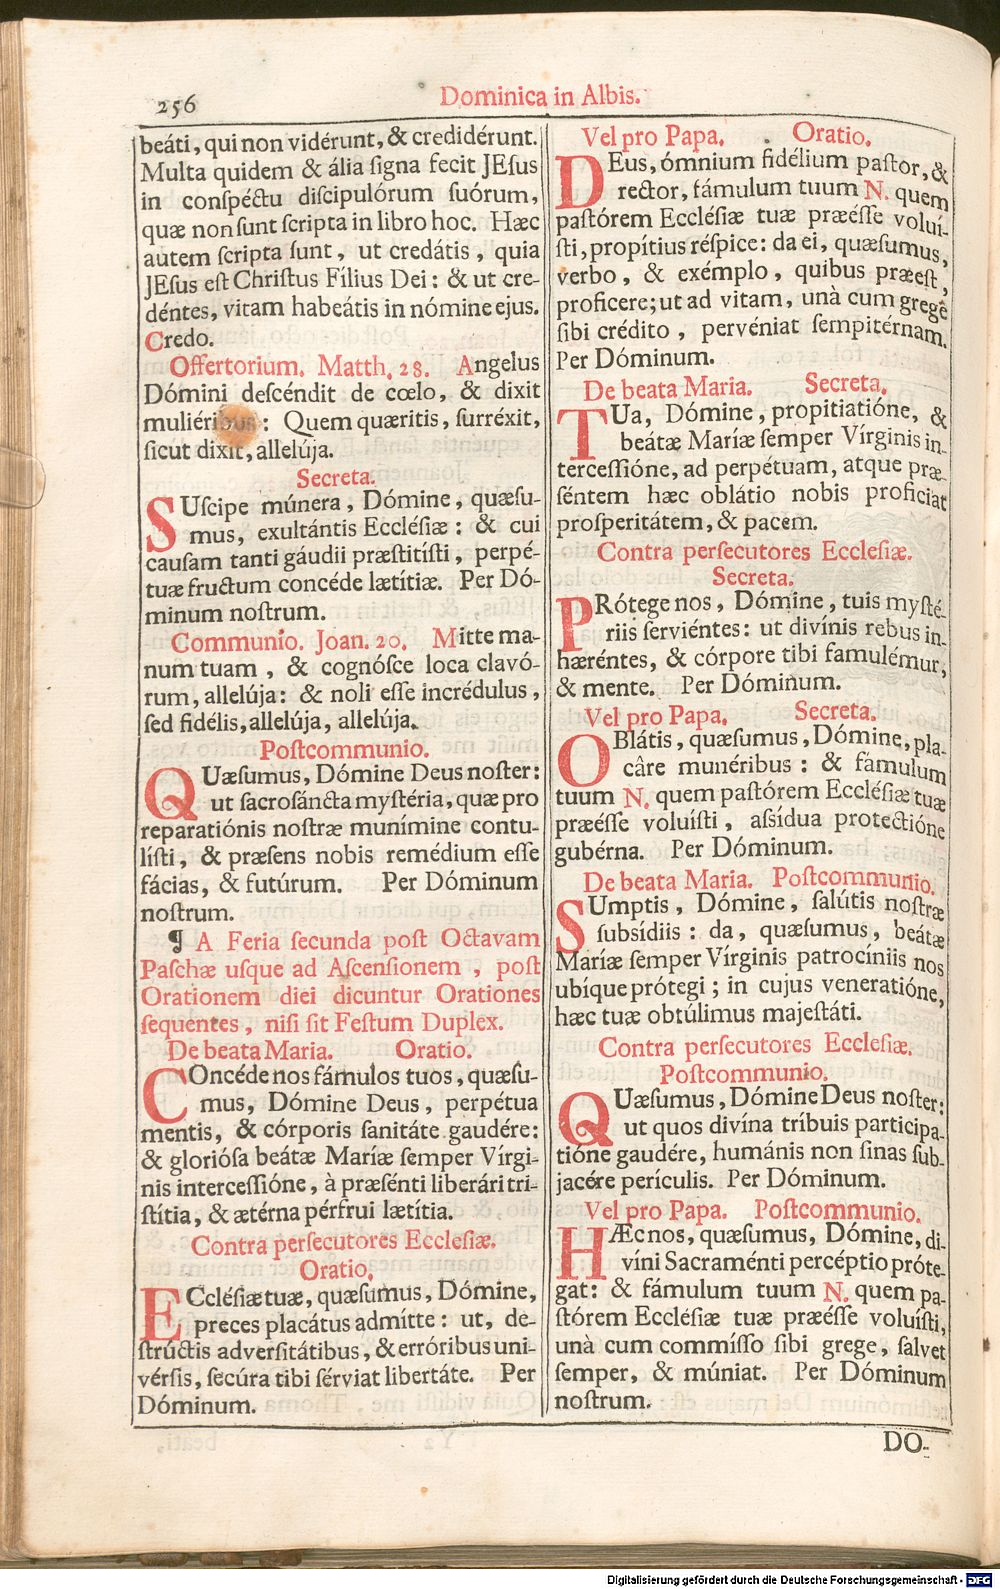 256
Dominica in Albis.
beáti, qui non vidérunt, & credidérunt.
Multa quidem & ália ſigna fecit JEſus
in conſpéctu diſcipulórum ſuórum,
quæ non ſunt ſcripta in libro hoc. Hæc
autem ſcripta ſunt, ut credátis, quia
JEſus eſt Chriſtus Fílius Dei: & ut cre-
déntes, vitam habeátis in nómine ejus.
Credo.
Offertorium. Matth. 28. Angelus
Dómini deſcéndit de cœlo, & dixit
muliéribus: Quem quæritis, ſurréxit,
ſicut dixit, allelúja.
Secreta.
SUſcipe múnera, Dómine, quæſu-
mus, exultántis Eccléſiæ: & cui
cauſam tanti gáudii præſtitíſti, perpé-
tuæ fructum concéde lætítiæ. Per Dó-
minum noſtrum.
Communio. Joan. 20. Mitte ma-
num tuam, & cognóſce loca clavó-
rum, allelúja: & noli eſſe incrédulus,
ſed fidélis, allelúja, allelúja.
Poſtcommunio.
QUæſumus, Dómine Deus noſter:
ut ſacroſáncta myſtéria, quæ pro
reparatiónis noſtræ munímine contu-
líſti, & præſens nobis remédium eſſe
fácias, & futúrum. Per Dóminum
noſtrum.
¶ A Feria ſecunda poſt Octavam
Paſchæ uſque ad Aſcenſionem, poſt
Orationem diei dicuntur Orationes
ſequentes, niſi ſit Feſtum Duplex.
De beata Maria. Oratio.
COncéde nos fámulos tuos, quæſu-
mus, Dómine Deus, perpétua
mentis, & córporis ſanitáte gaudére:
& glorióſa beátæ Maríæ ſemper Vírgi-
nis interceſſióne, à præſénti liberári tri-
ſtítia, & ætérna pérfrui lætítia.
Contra perſecutores Eccleſiæ.
Oratio.
ECcléſiæ tuæ, quæſumus, Dómine,
preces placátus admítte: ut, de-
ſtrúctis adverſitátibus, & erróribus uni-
vérſis, ſecúra tibi ſérviat libertáte. Per
Dóminum.
Vel pro Papa. Oratio.
DEus, ómnium fidélium paſtor, &
rector, fámulum tuum N. quem
paſtórem Eccléſiæ tuæ præéſſe voluí-
ſti, propítius réſpice: da ei, quæſumus,
verbo, & exémplo, quibus præeſt,
proficere; ut ad vitam, unà cum grege
ſibi crédito, pervéniat ſempitérnam.
Per Dóminum.
De beata Maria. Secreta.
TUa, Dómine, propitiatióne, &
beátæ Maríæ ſemper Vírginis in-
terceſſióne, ad perpétuam, atque præ-
ſéntem hæc oblátio nobis proficiat
proſperitátem, & pacem.
Contra perſecutores Eccleſiæ.
Secreta.
PRótege nos, Dómine, tuis myſté-
riis ſerviéntes: ut divínis rebus in-
hæréntes, & córpore tibi famulémur,
& mente. Per Dóminum.
Vel pro Papa. Secreta.
OBlátis, quæſumus, Dómine, pla-
câre munéribus: & fámulum
tuum N. quem paſtórem Eccléſiæ tuæ
præéſſe voluíſti, aſſídua protectióne
gubérna. Per Dóminum.
De beata Maria. Poſtcommunio.
SUmptis, Dómine, ſalútis noſtræ
ſubſídiis: da, quæſumus, beátæ
Maríæ ſemper Vírginis patrocíniis nos
ubíque prótegi; in cujus veneratióne,
hæc tuæ obtúlimus majeſtáti.
Contra perſecutores Eccleſiæ.
Poſtcommunio.
QUæſumus, Dómine Deus noſter:
ut quos divína tríbuis participa-
tióne gaudére, humánis non ſinas ſub-
jacére perículis. Per Dóminum.
Vel pro Papa. Poſtcommunio.
HÆc nos, quæſumus, Dómine, di-
víni Sacraménti percéptio próte-
gat: & fámulum tuum N. quem pa-
ſtórem Eccléſiæ tuæ præéſſe voluíſti,
unà cum commíſſo ſibi grege, ſalvet
ſemper, & múniat. Per Dóminum
noſtrum.
DO-
Digitalisierung gefördert durch die Deutsche Forschungsgemeinschaft - DFG